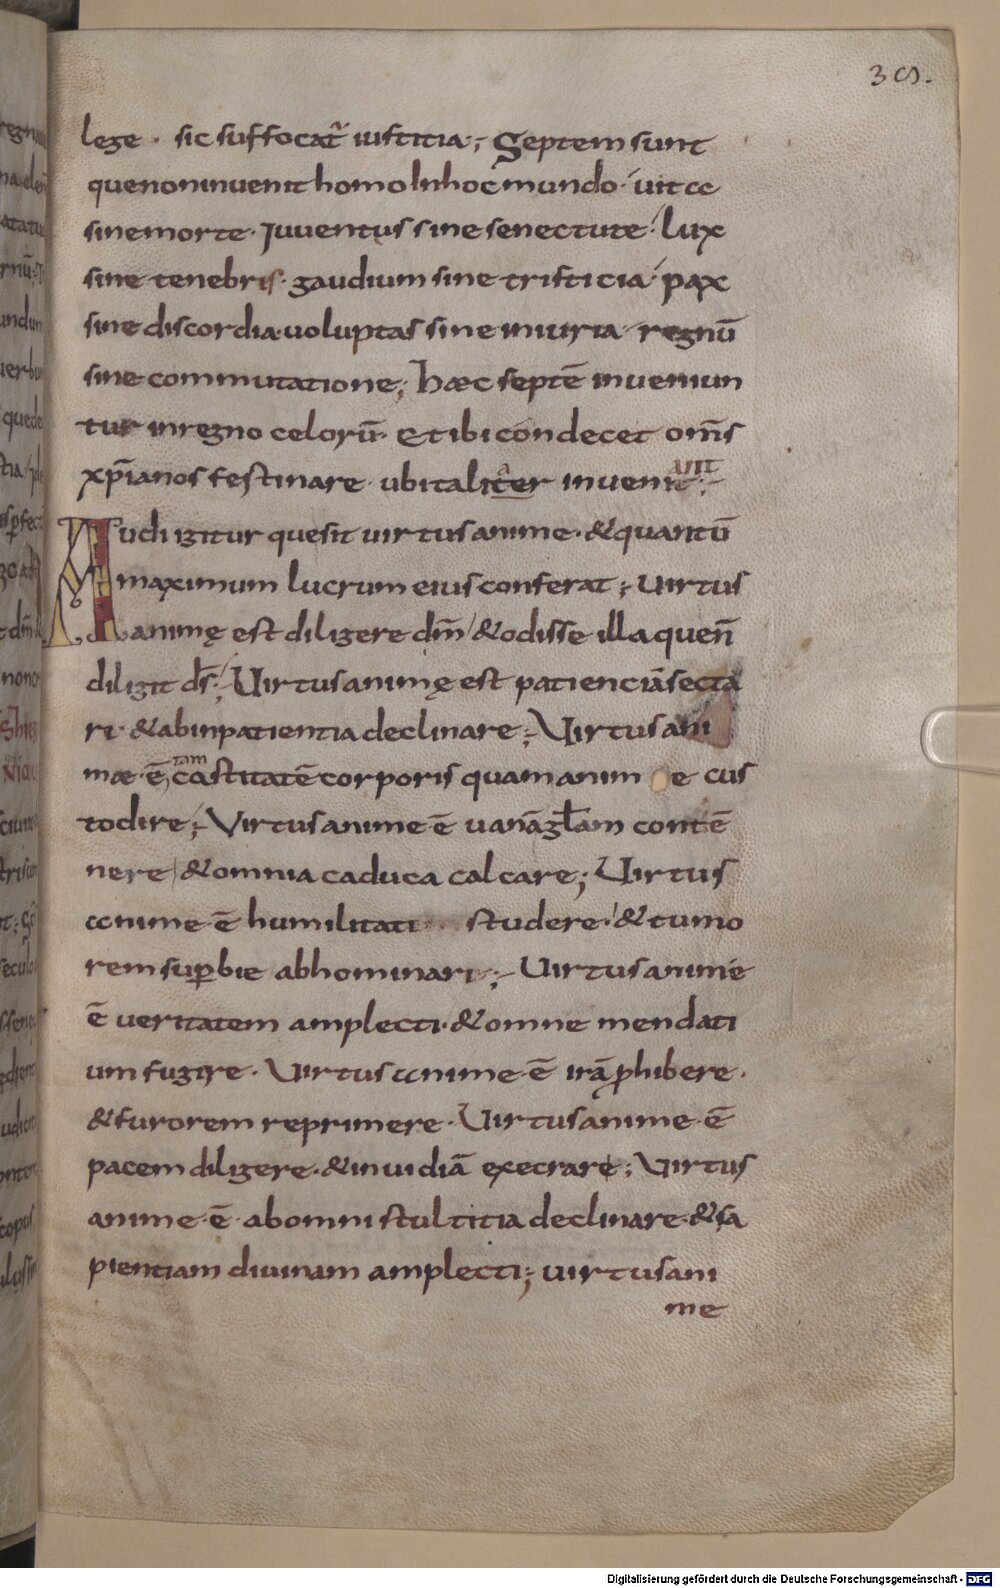 lege · sic suffocat̄ iustitia; Septem sunt
que non inuenit homo In hoc mundo · uita
sine morte · Iuuentus sine senectute · lux
sine tenebris · gaudium sine tristicia · pax
sine discordia uoluptas sine iniuria · regnū
sine commutatione; haec septē inueniun
tur in regno celorū · & tibi condecet om̄s
xp̄ianos festinare · ubi taliter inuenit
ant
Audi igitur que sit uirtus anime · & quantū
maximum lucrum eius conferat; uirtus
animę est diligere dm̄ & odisse illa que ñ
diligit ds̄; Uirtus animę est patienciā secta
ri · & ab inpatientia declinare; Uirtus ani
mae · ē, castitatē corporis quam anim e cus
tam
todire; Virtus anime ē uanā gl̄am contē
nere & omnia caduca calcare; Uirtus
anime · ē humilitati studere · & tumo
rem sup̄bie abhominari; Uirtus anime
ē ueritatem amplecti · & omne mendati
um fugire · Uirtus anime · ē irā ꝓhibere ·
& furorem reprimere · Uirtus anime · ē
pacem diligere · & inuidiā execrare; Virtus
anime · ē · ab omni stultitia declinare · & sa
pientiam diuinam amplecti; uirtus ani
me
Digitalisierung gefördert durch die Deutsche Forschungsgemeinschaft - DFG